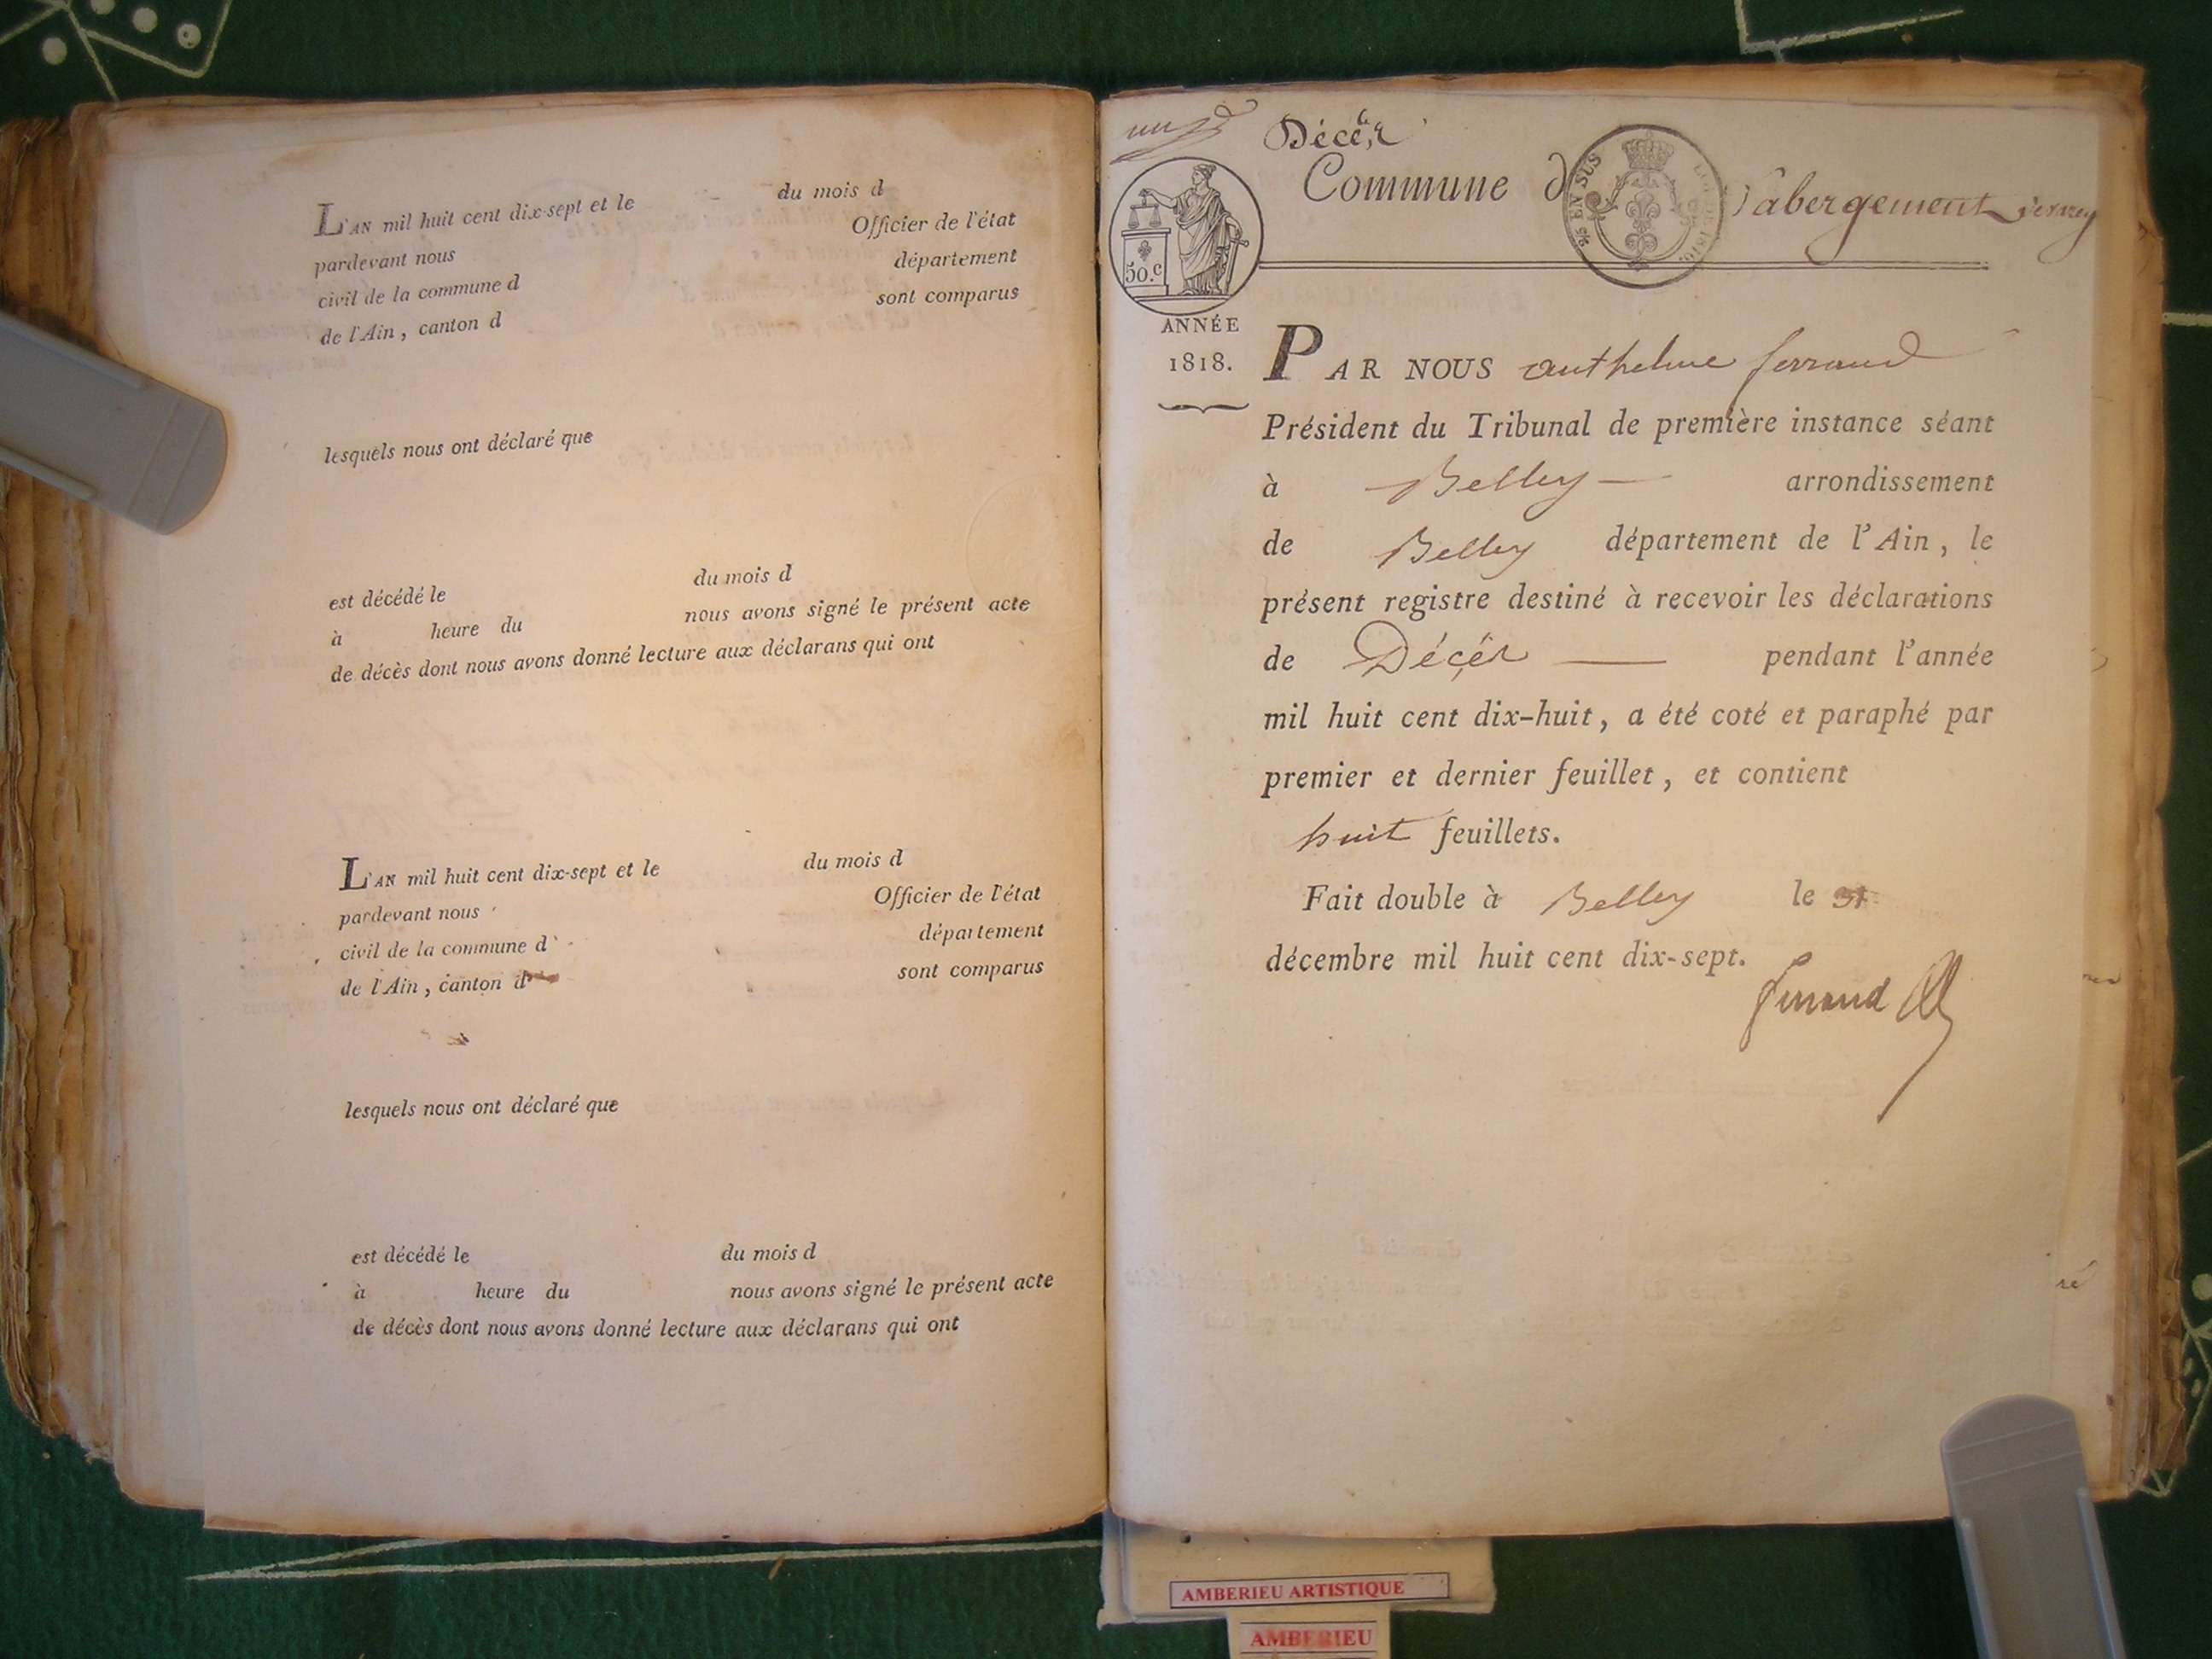 L'AN mil huit cent dix-sept et le du mois d
pardevant nous Officier de l'état
civil de la commune d département
de l'Ain, canton d sont comparus
lesquels nous ont déclaré que
est décédé le du mois d
à heure du nous avons signé le présent acte
de décès dont nous avons donné lecture aux déclarans qui ont
L'AN mil huit cent dix-sept et le du mois d
pardevant nous Officier de l'état
civil de la commune d département
de l'Ain, canton d sont comparus
lesquels nous ont déclaré que
est décédé le du mois d
à heure du nous avons signé le présent acte
de décès dont nous avons donné lecture aux déclarans qui ont
Décès
Commune d l'abergement
EN SUS
50.c
ANNÉE
1818.
PAR NOUS anthelme ferrand
Président du Tribunal de première instance séant
à Belley arrondissement
de Belley département de l'Ain, le
présent registre destiné à recevoir les déclarations
de Décès pendant l'année
mil huit cent dix-huit, a été coté et paraphé par
premier et dernier feuillet, et contient
huit feuillets.
Fait double à Belley le 31
décembre mil huit cent dix-sept.
ferrand
ré
AMBERIEU ARTISTIQUE
AMBERIEU